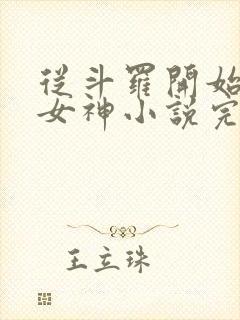 從斗羅開始
女神小說完
王立珠